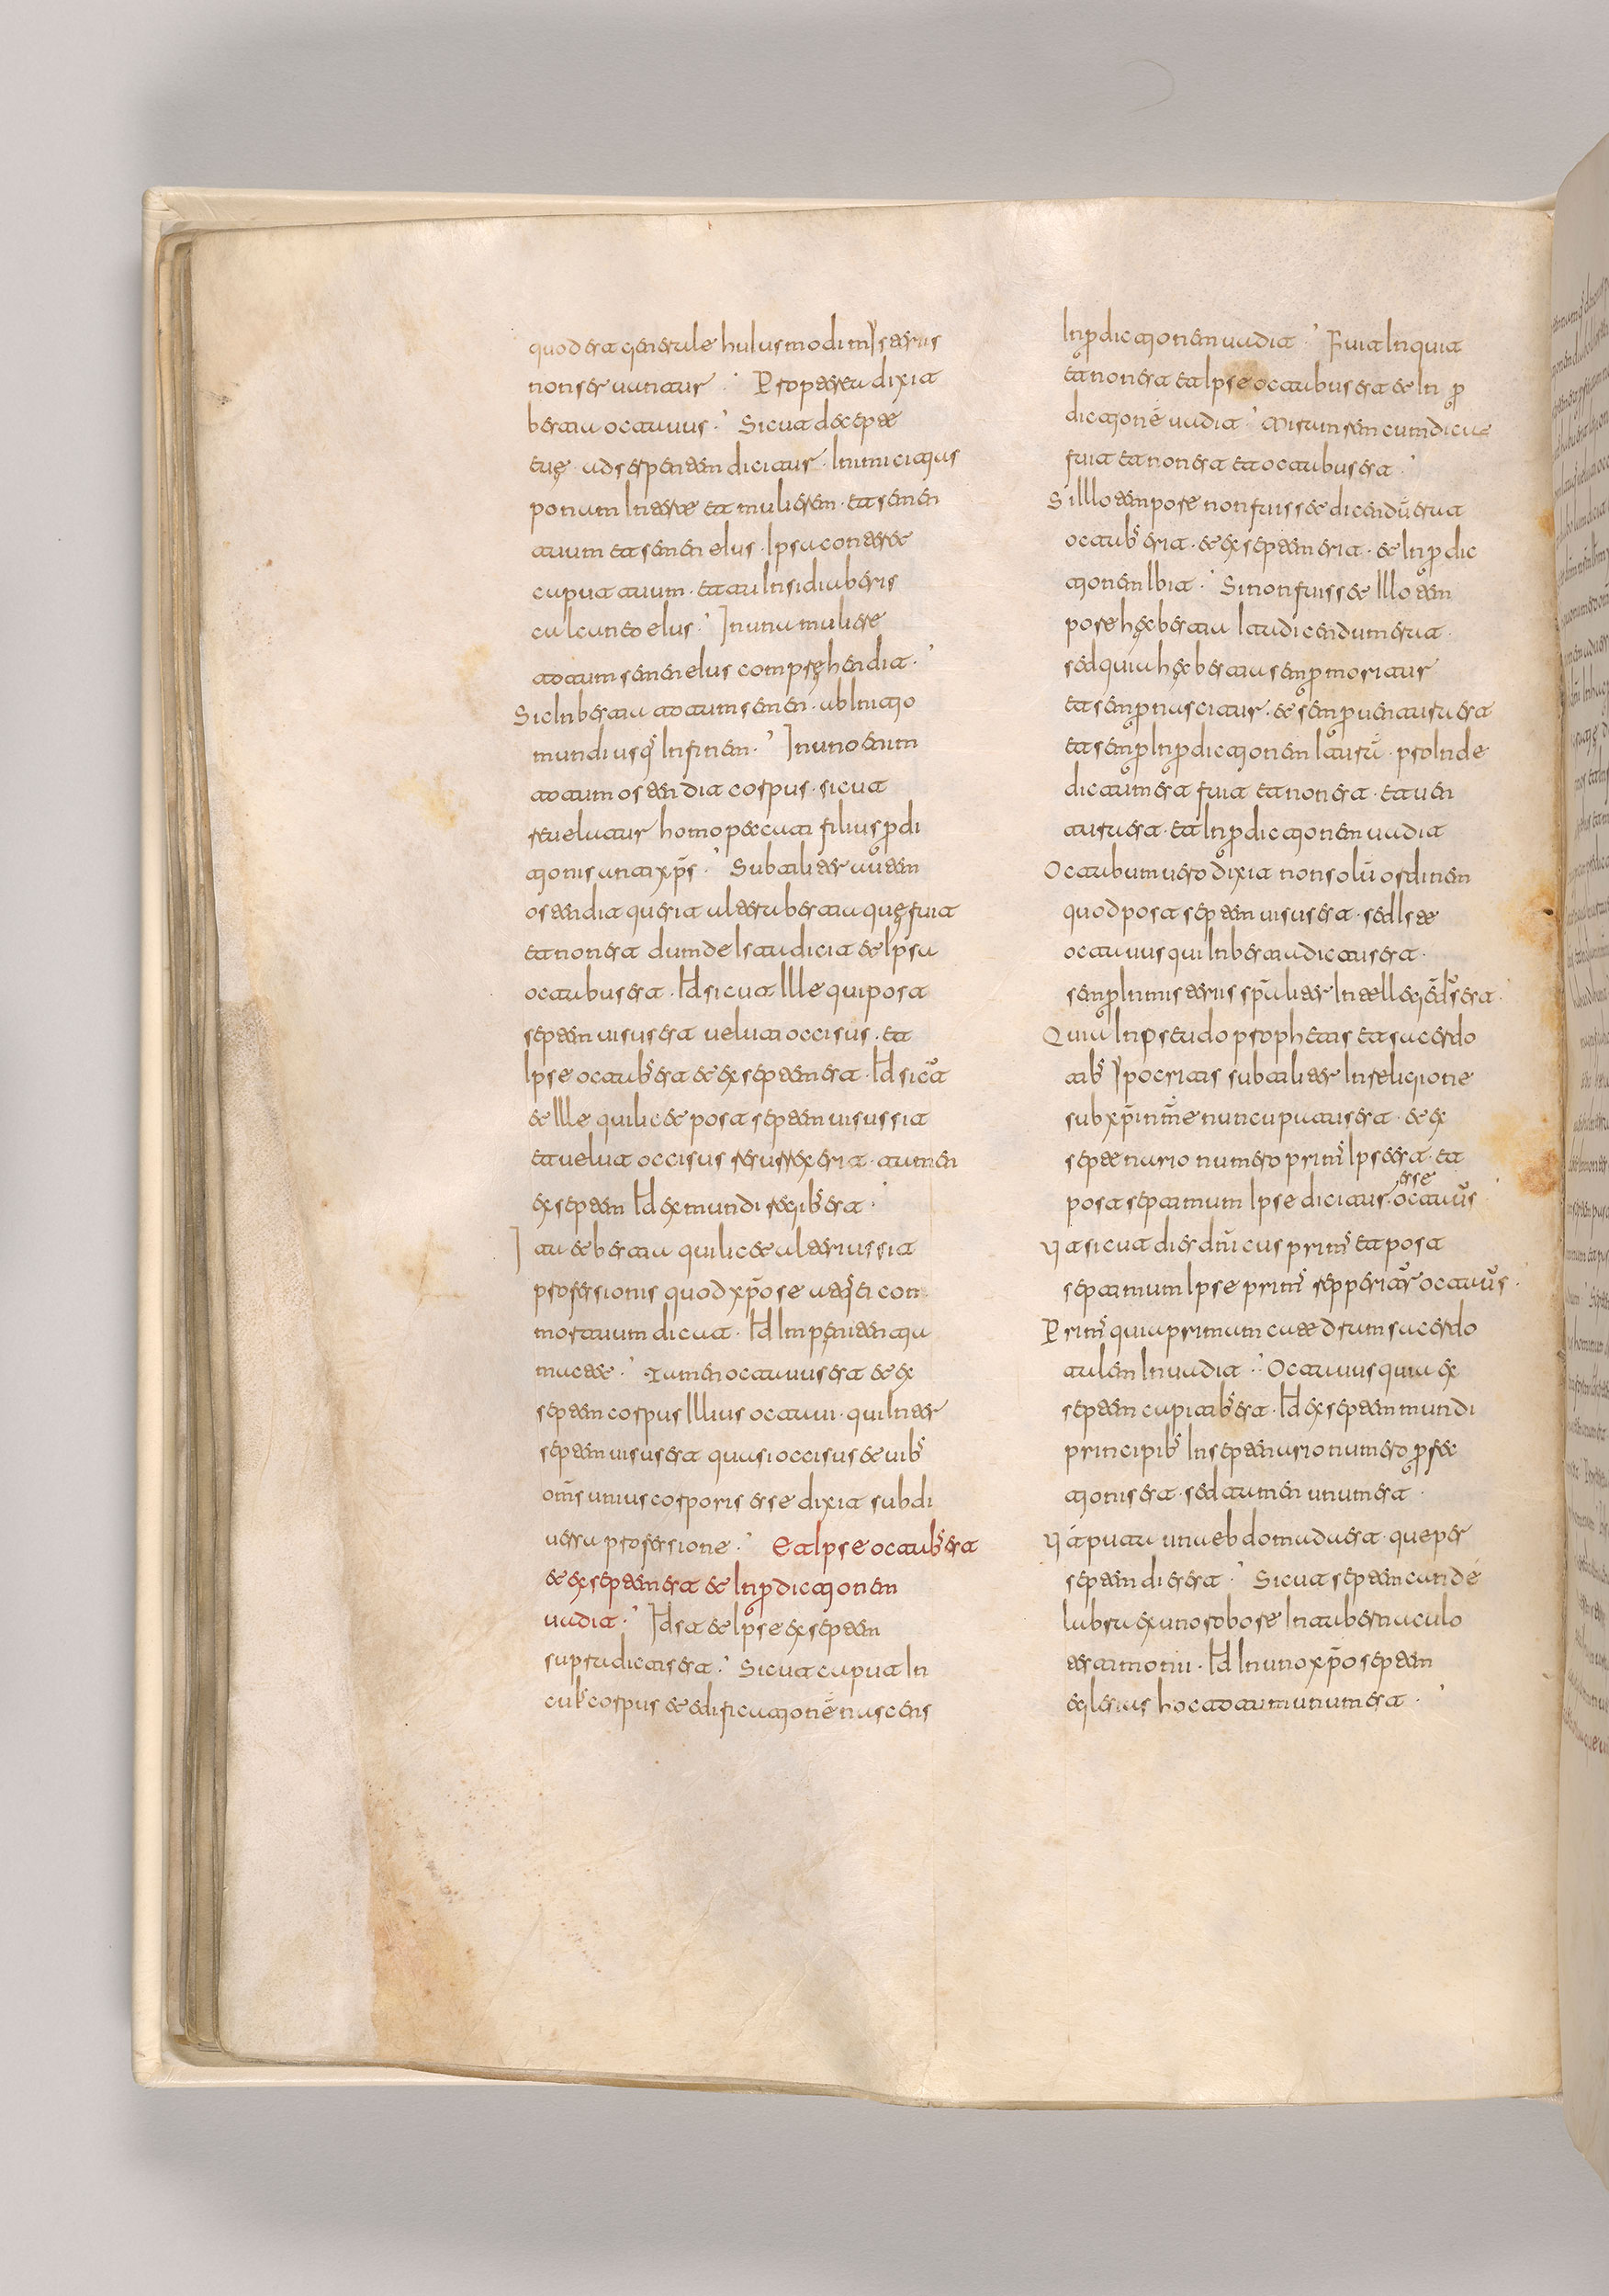 quod est generale huius modi mYsteriis
non seruantur · Propterea dixit
bestia octauus · Sicut decepte
eue · ad serpentem dicitur · Inimicitias
ponam inter te et mulierem · et semen
tuum et semen eius · Ipsa conteret
caput tuum · et tu insidiaberis
calcaneo eius · In una muliere
totum semen eius comprehendit ·
Sic in bestia totum semen · ab initio
mundi usq' in finem · In uno enim
totum ostendit corpus · sicut
reueletur homo peccati filius perdi
tionis antixp̄s · Subtiliter autem
ostendit queri altera bestia que fuit
et non est dum de ista dicit et ipsa
octaubus est · Id sicut ille qui post
septem uisus est uelut occisus · et
ipse octaub' est et ex septem est · Id sicut
et ille qui licet post septem uisus sit
et uelut occisus resurrexerit · tamen
ex septem Id ex mundi regib' est ·
Ita et bestia qui licet alterius sit
professionis quod xp̄o se uelut ei con
mortuum dicat · Id inpenitentia
mactate · Tamen octauus est et ex
septem corpus illius octaui · qui inter
septem uisus est quasi occisus et uib'
om̄s unius corporis esse dixit sub di
uersa professione · Et Ipse octaub' est
et ex septem est et In p̱ditionem
uadit · Ista et ipse ex septem
supradictis est · Sicut caput in
cuius corpus et edificationē nascens
In p̱ditionem uadit · Fuit inquit
et non est et ipse octaubus est et in p̱
ditionē uadit · Mirum rem cum dicat
fuit et non est et octaubus est ·
Si illo tempore non fuisset dicendū erat
octaub' erit · et ex septem erit · et in p̱dic
tionem ibit · Si non fuisset illo tem
pore hec bestia ita dicendum erat ·
sed quia hec bestia semp̱ moritur
et semp̱ nascitur · et semp̱ uentura est
et semp̱ in p̱ditionem iturā · proinde
dictum est fuit et non est · et uen
tura est · et in p̱ditionem uadit
Octaubum uero dixit non solū ordinem
quod post septem uisus est · sed iste
octauus qui in bestia dictus est ·
semp̱ in misteriis sp̄aliter intellegēd's est ·
Quia in pseudo prophetis et sacerdo
tib' Ypocritis subtiliter in religione
sub xp̄i nm̄e nuncupatus est · et ex
septenario numero prim' ipse est · et
post septimum ipse dicitur esse octauus
Nā sicut dies dn̄icus prim' et post
septimum ipse prim' repperitur octauus ·
Prim' quia primum catedram sacerdo
talem inuadit · Octauus quia ex
septem capitib' est · Id ex septem mundi
principib' in septenario numero p̱fec
tionis est · sed tamen unum est ·
Nā et puta una ebdomada est · que per
septem dies est · Sicut septem cande
labra ex uno robore in tabernaculo
testimonii · Id in uno xp̄o septem
eclesias hoc totum unum est ·